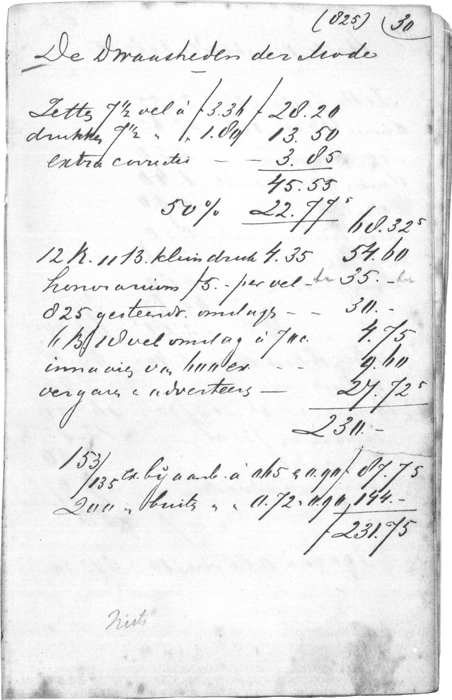 (825) 30
De Dwaasheden der Mode
Zetten 7 1/2 vel à f 3.76 f 28.20
drukken 7 1/2 " " 1.80 13.50
extra correctie - - 3.85
45.55
50% 22.77⁵
68.32⁵
12 R. 11 B. kleindruk 4.35 54.60
honorarium f5.- per vel - 35.-
825 gesteendr. omslags - - 30.-
vel omslag à 4.75
innaaien van 600 ex. - - 9.60
vergaren & adverteeren - 27.72⁵
230.-
153/135 Ex. bij aanb. à 0.65 à 0.90 f 87.75
200 " buiten " " 0.72 " 0.90 144.-
f 231.75
Niets